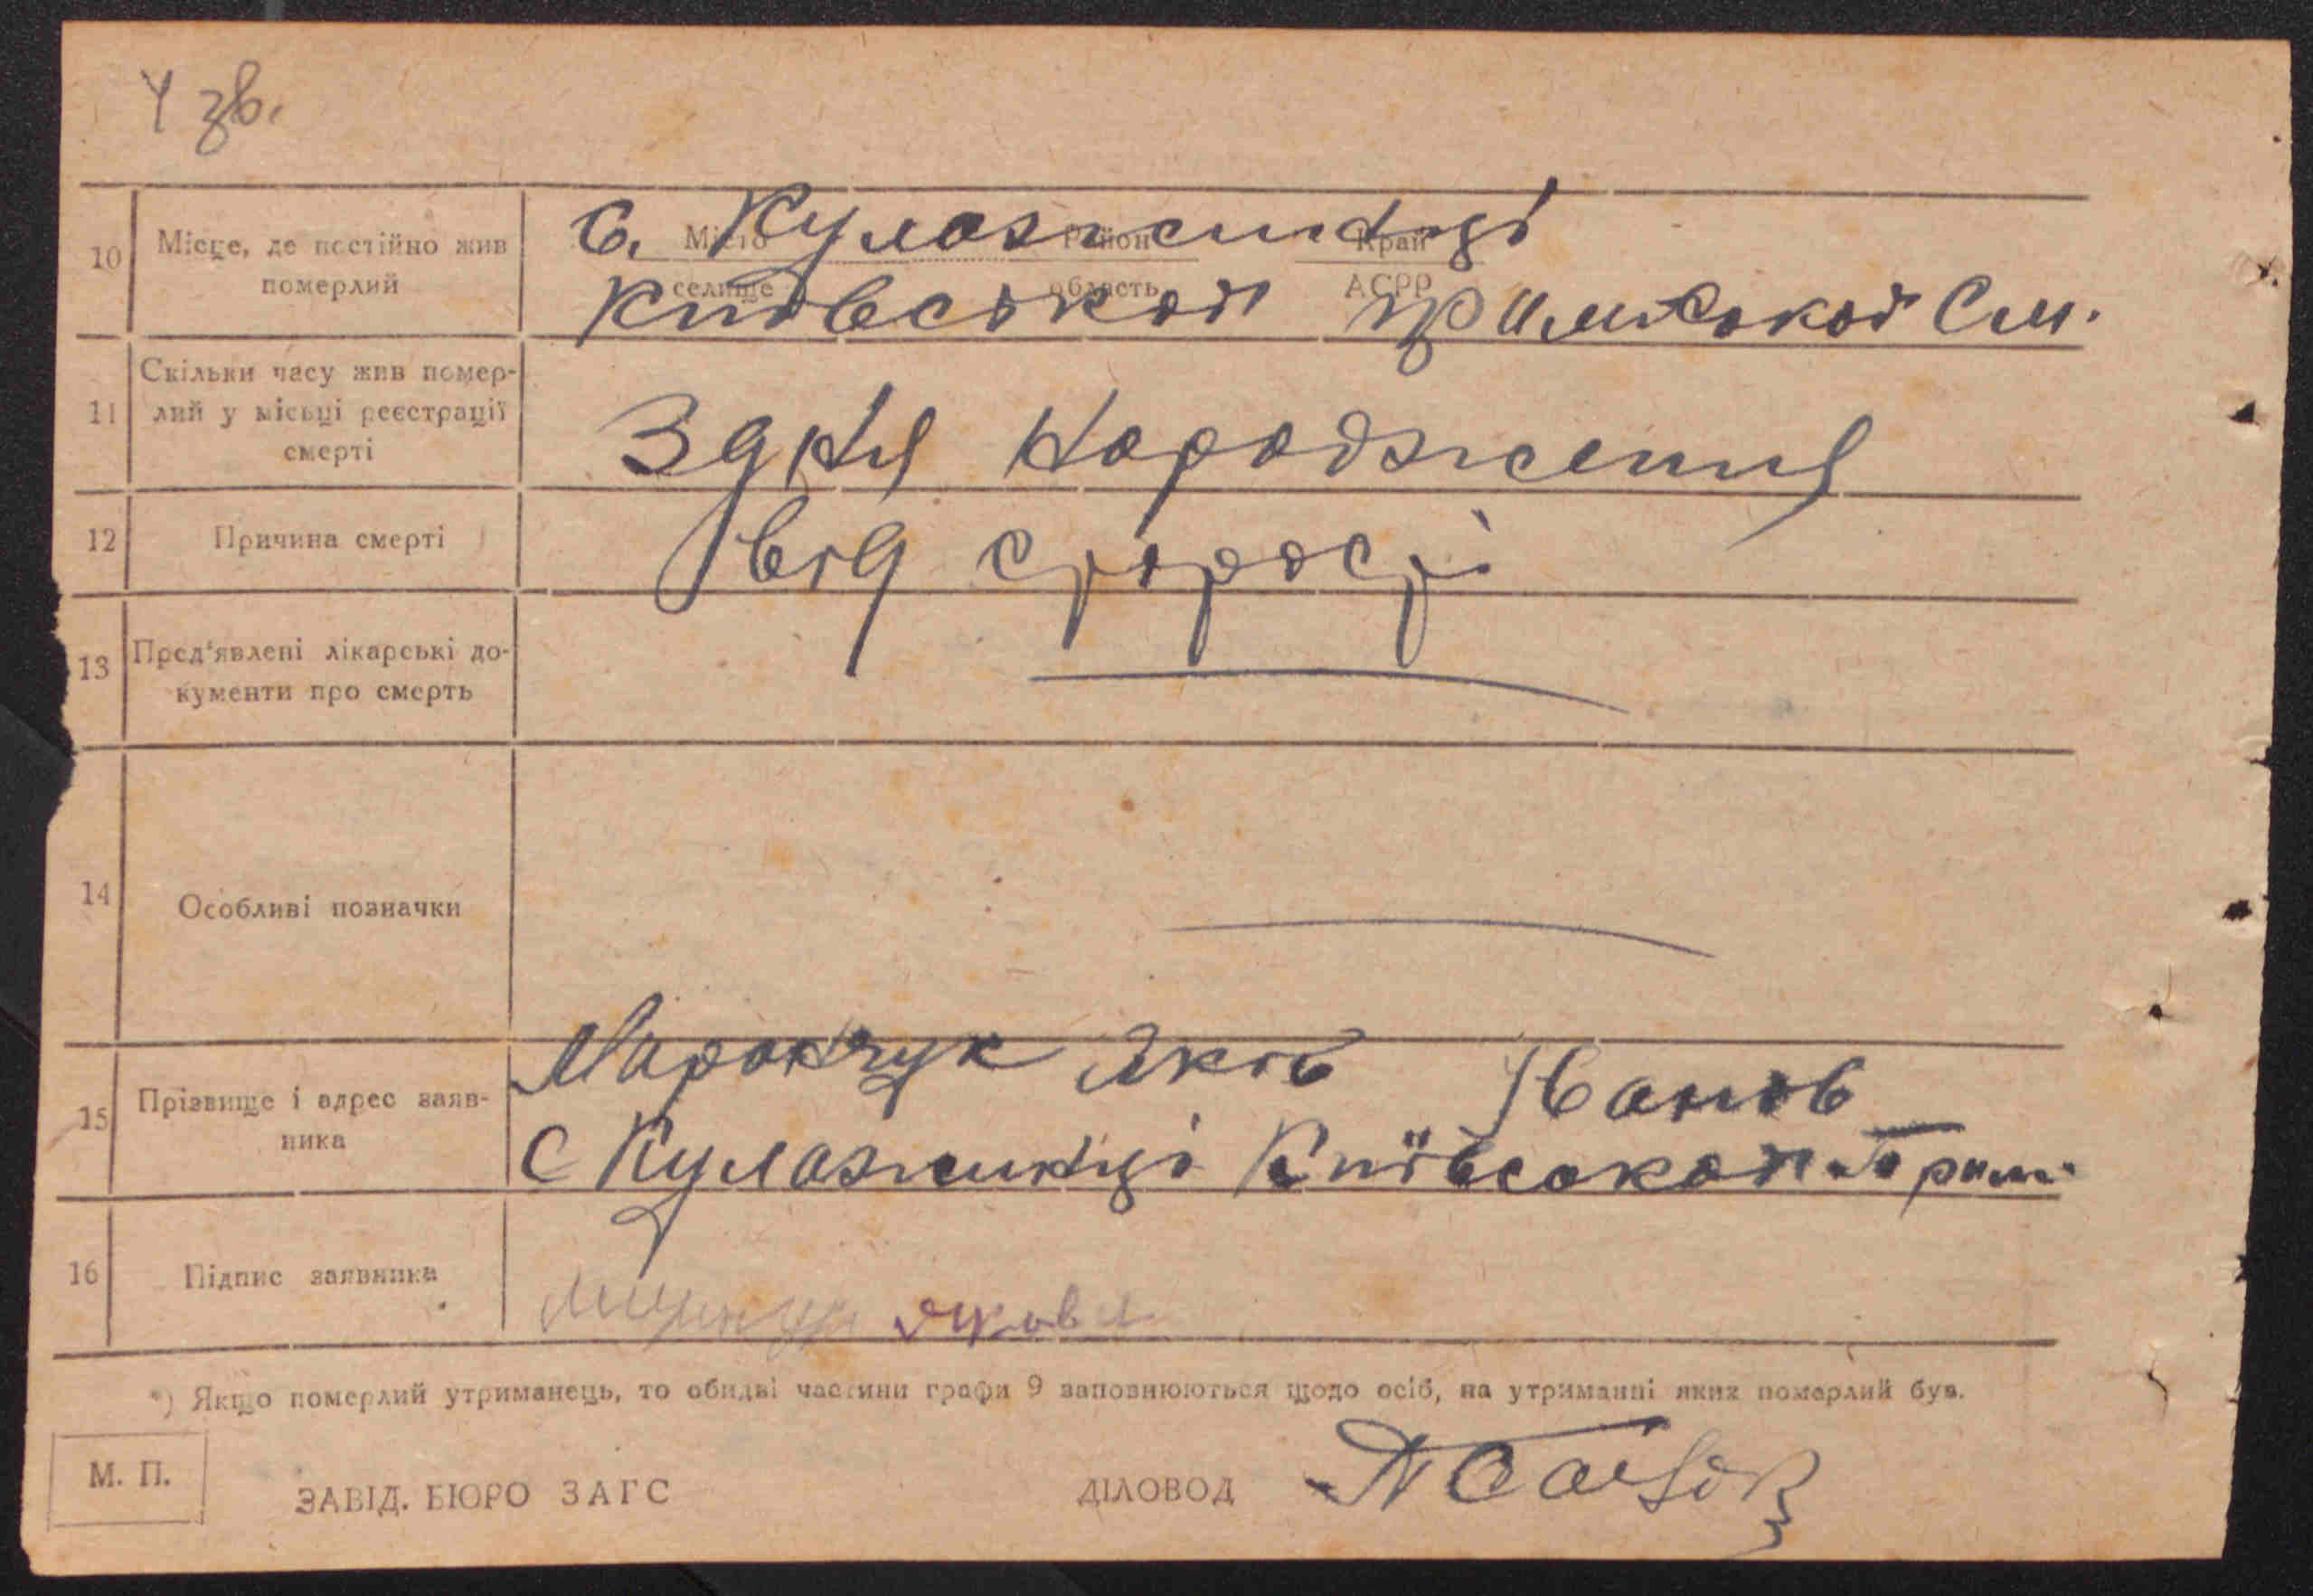 У зв.
10 Місце, де постійно жив померлий
Місто Район Край
селище область АСРР
с. Кулажинці
Київської
11 Скільки часу жив помер-
лий у місьці реєстрації
смерті
З дня народження
12 Причина смерті
від старості
13 Пред'явлені лікарські до-
кументи про смерть
14 Особливі позначки
15 Прізвище і адрес заяв-
ника
Яків Іванов
с Кулажинці Київської
16 Підпис заявника
*) Якщо померлий утриманець, то обидві частини графи 9 заповнюються щодо осіб, на утриманні яких померлий був.
М. П.
ЗАВІД. БЮРО ЗАГС ДІЛОВОД